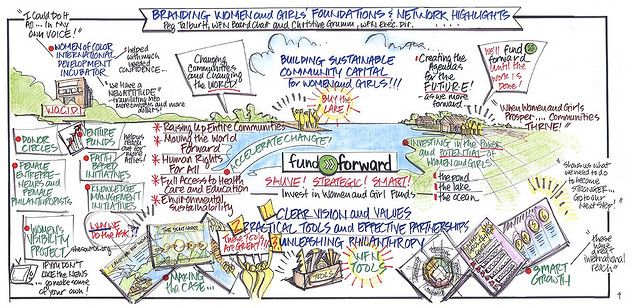 BRANDING WOMEN and GIRLS FOUNDATIONS & NETWORK HIGHLIGHTS
Peg Talburtt, WFN Board Chair and Christine Grumm, WFN Exec. Dir.
"I could Do it
All... in my
own VOICE!"
WOMEN of COLOR
INTERNATIONAL
DEVELOPMENT
INCUBATOR
helped
with much
needed
CONFIDENCE...
"We have a
NEWTTITUDE"
translating into
more energies and more
dollars
W.O.C.I.D.I.
Changing
Communities
and Changing
the WORLD!
BUILDING SUSTAINABLE
COMMUNITY CAPITAL
for WOMEN and GIRLS!!!
BUY the
LAKE!
Creating the
Agendas
for the
FUTURE!
as we move
forward
We'll fund
forward
Until the
WORK IS
DONE!
When Women and Girls
Prosper.... Communities
THRIVE!
DONOR
CIRCLES
VENTURE
FUNDS
FAITH
BASED
INITIATIVES
helps
FEMALE
ENTREPRE-
NEURS and
FEMALE
PHILANTHROPISTS
KNOWLEDGE
MANAGEMENT
INITIATIVES
WOMEN'S
VISIBILITY
PROJECT
CAN WE
DO the ASK?
IF YOU DON'T
LIKE the NEWS
...go make some
of your own!
* Raising Up Entire Communities
* Moving the World
Forward
* Human Rights
For All
* Full Access to Health
Care and Education
* Environmental
Sustainability
ACCELERATE CHANGE!
fund forward
SAUVE! STRATEGIC! SMART!
Invest in Women and Girl Funds
INVESTING in the POWER
and POTENTIAL of
WOMEN and GIRLS!
the pond
the lake
the ocean
shows us what
we need to do
to become
STRONGER...
Go to our
Next Step!
CLEAR VISION and VALUES
PRACTICAL TOOLS and EFFECTIVE PARTNERSHIPS
UNLEASHING PHILANTHROPY
THESE TOOLS
ARE GREAT!
MAKING
the CASE...
TOOLS
WFN
TOOLS
SMART
GROWTH
"these
have great
international
reach"